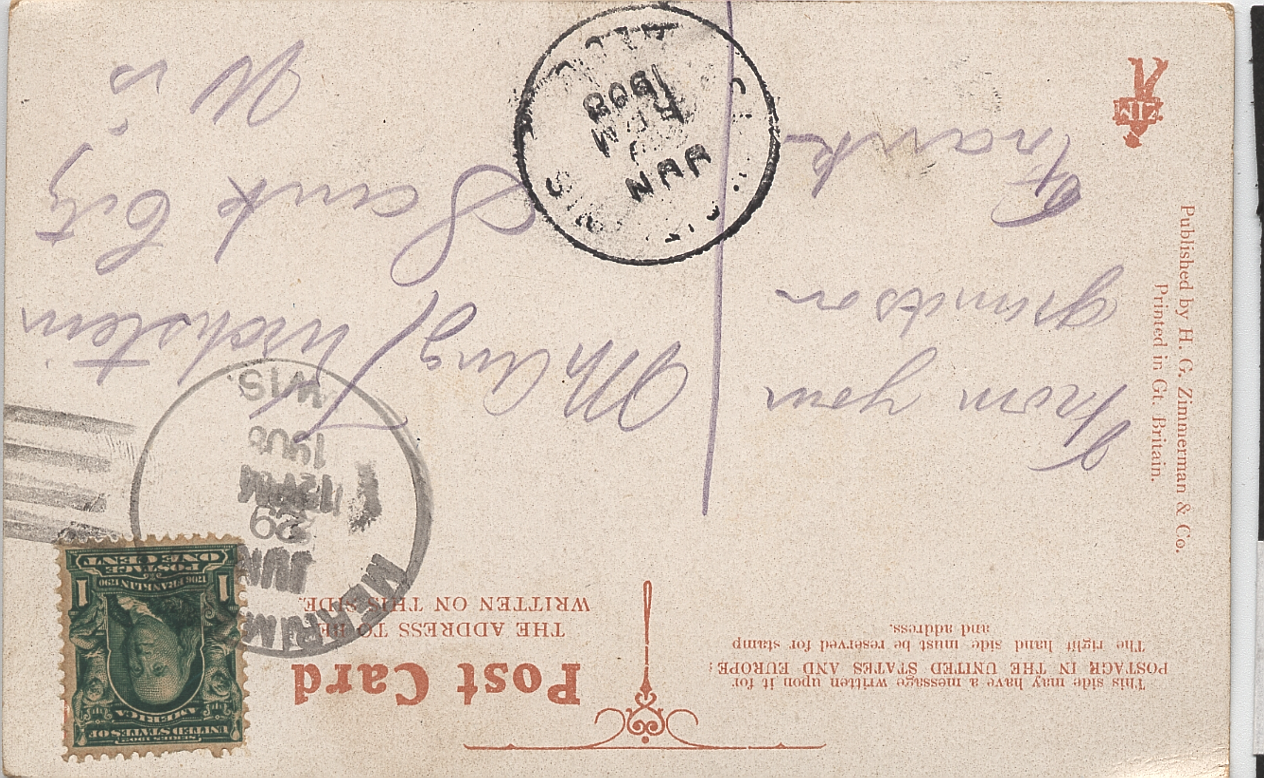 This side may have a message written upon it for
POSTAGE IN THE UNITED STATES AND EUROPE:
The right hand side must be reserved for stamp
and address.
Post Card
THE ADDRESS TO BE
WRITTEN ON THIS SIDE.
SERIES 1902
UNITED STATES OF
AMERICA
1706 FRANKLIN 1790
POSTAGE
ONE CENT
1 1
JUN
29
12 M
1908
WIS.
From your
grandson
Frank
Mr Aug
Sauk City
Wis
JUN
1908
Published by H. G. Zimmerman & Co.
Printed in Gt. Britain.
ZIM